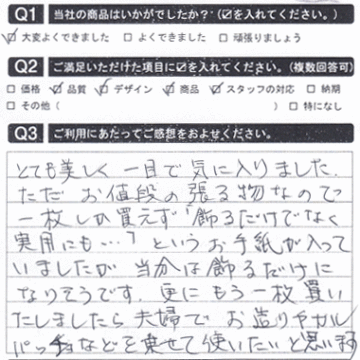 Q1 当社の商品はいかがでしたか?(☑を入れてください。)
☑大変よくできました □よくできました □頑張りましょう
Q2 ご満足いただけた項目に☑を入れてください。(複数回答可)
□価格 ☑品質 ☑デザイン ☑商品 ☑スタッフの対応 □納期
□その他( ) □特になし
Q3 ご利用にあたってご感想をおよせください。
とても美しく一目で気に入りました.
ただ お値段の張る物なので
一枚しか買えず「飾るだけでなく
実用にも…」というお手紙が入って
いましたが 当分は飾るだけに
なりそうです。更にもう一枚買い
たしましたら夫婦で お造りやカル
パッチョなどを乗せて使いたいと思い